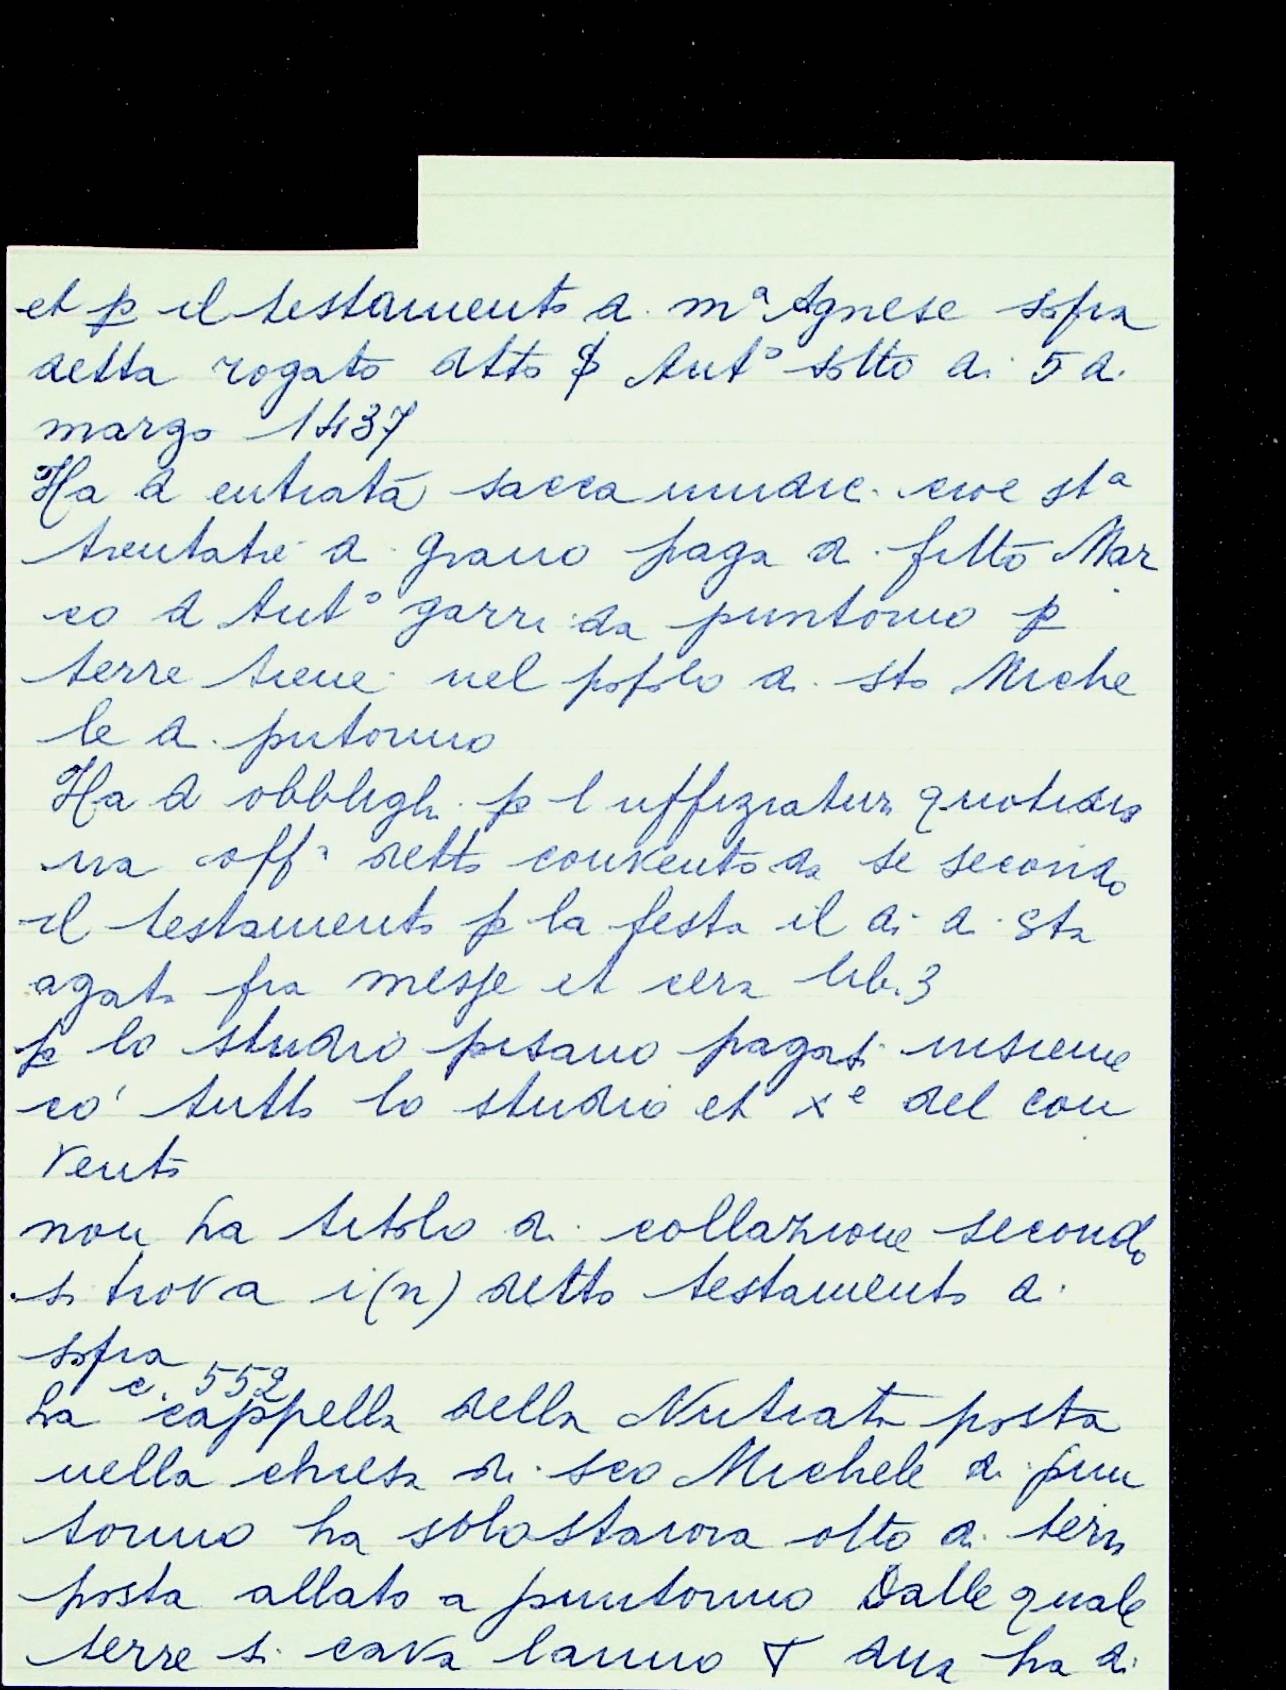 et p il testamento di mª Agnese sopra
detta rogato detto $ Antº sotto di 5 di
marzo 1437
Ha d entrata sacca undic. cioe stª
trentatre di grano paga di fitto Mar
co d Antº garri da puntorno p
terre tiene nel popolo di sto Miche
le di putorno
Ha d obblighi p l uffiziatura quotidia
na offª detto convento da se secondo
il testamento p la festa il di di Sta
agata fra messe et cera lib. 3
p lo studio pisano pagasi insieme
co' tutto lo studio et xᵉ del con
vento
non ha titolo di collazione secondo
si trova i(n) detto testamento di
sopra
c. 552
La cappella della Nutiata posta
nella chiesa di sco Michele di pun
torno ha solo staiora otto di terra
posta allato a puntorno Dalle quale
terre si cava lanno dua ha di